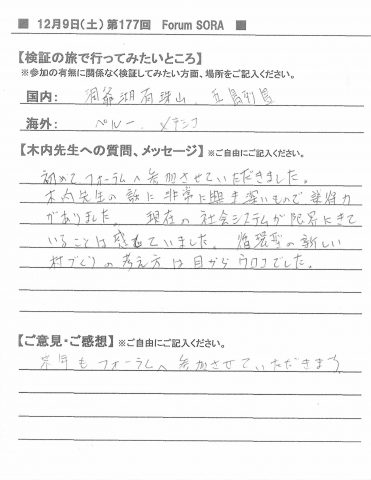 ■ 12月9日(土)第177回 Forum SORA ■
【検証の旅で行ってみたいところ】
※参加の有無に関係なく検証してみたい方面、場所をご記入ください。
国内: 洞爺湖有珠山、五島列島
海外: ペルー、メキシコ
【木内先生への質問、メッセージ】※ご自由にご記入ください。
初めてフォーラムへ参加させていただきました。
木内先生の話は非常に興味深いもので説得力
がありました。 現在の社会システムが限界にきて
いることは感じていました。循環型の新しい
村づくりの考え方は目からウロコでした。
【ご意見・ご感想】※ご自由にご記入ください。
来年もフォーラムへ参加させていただきます。